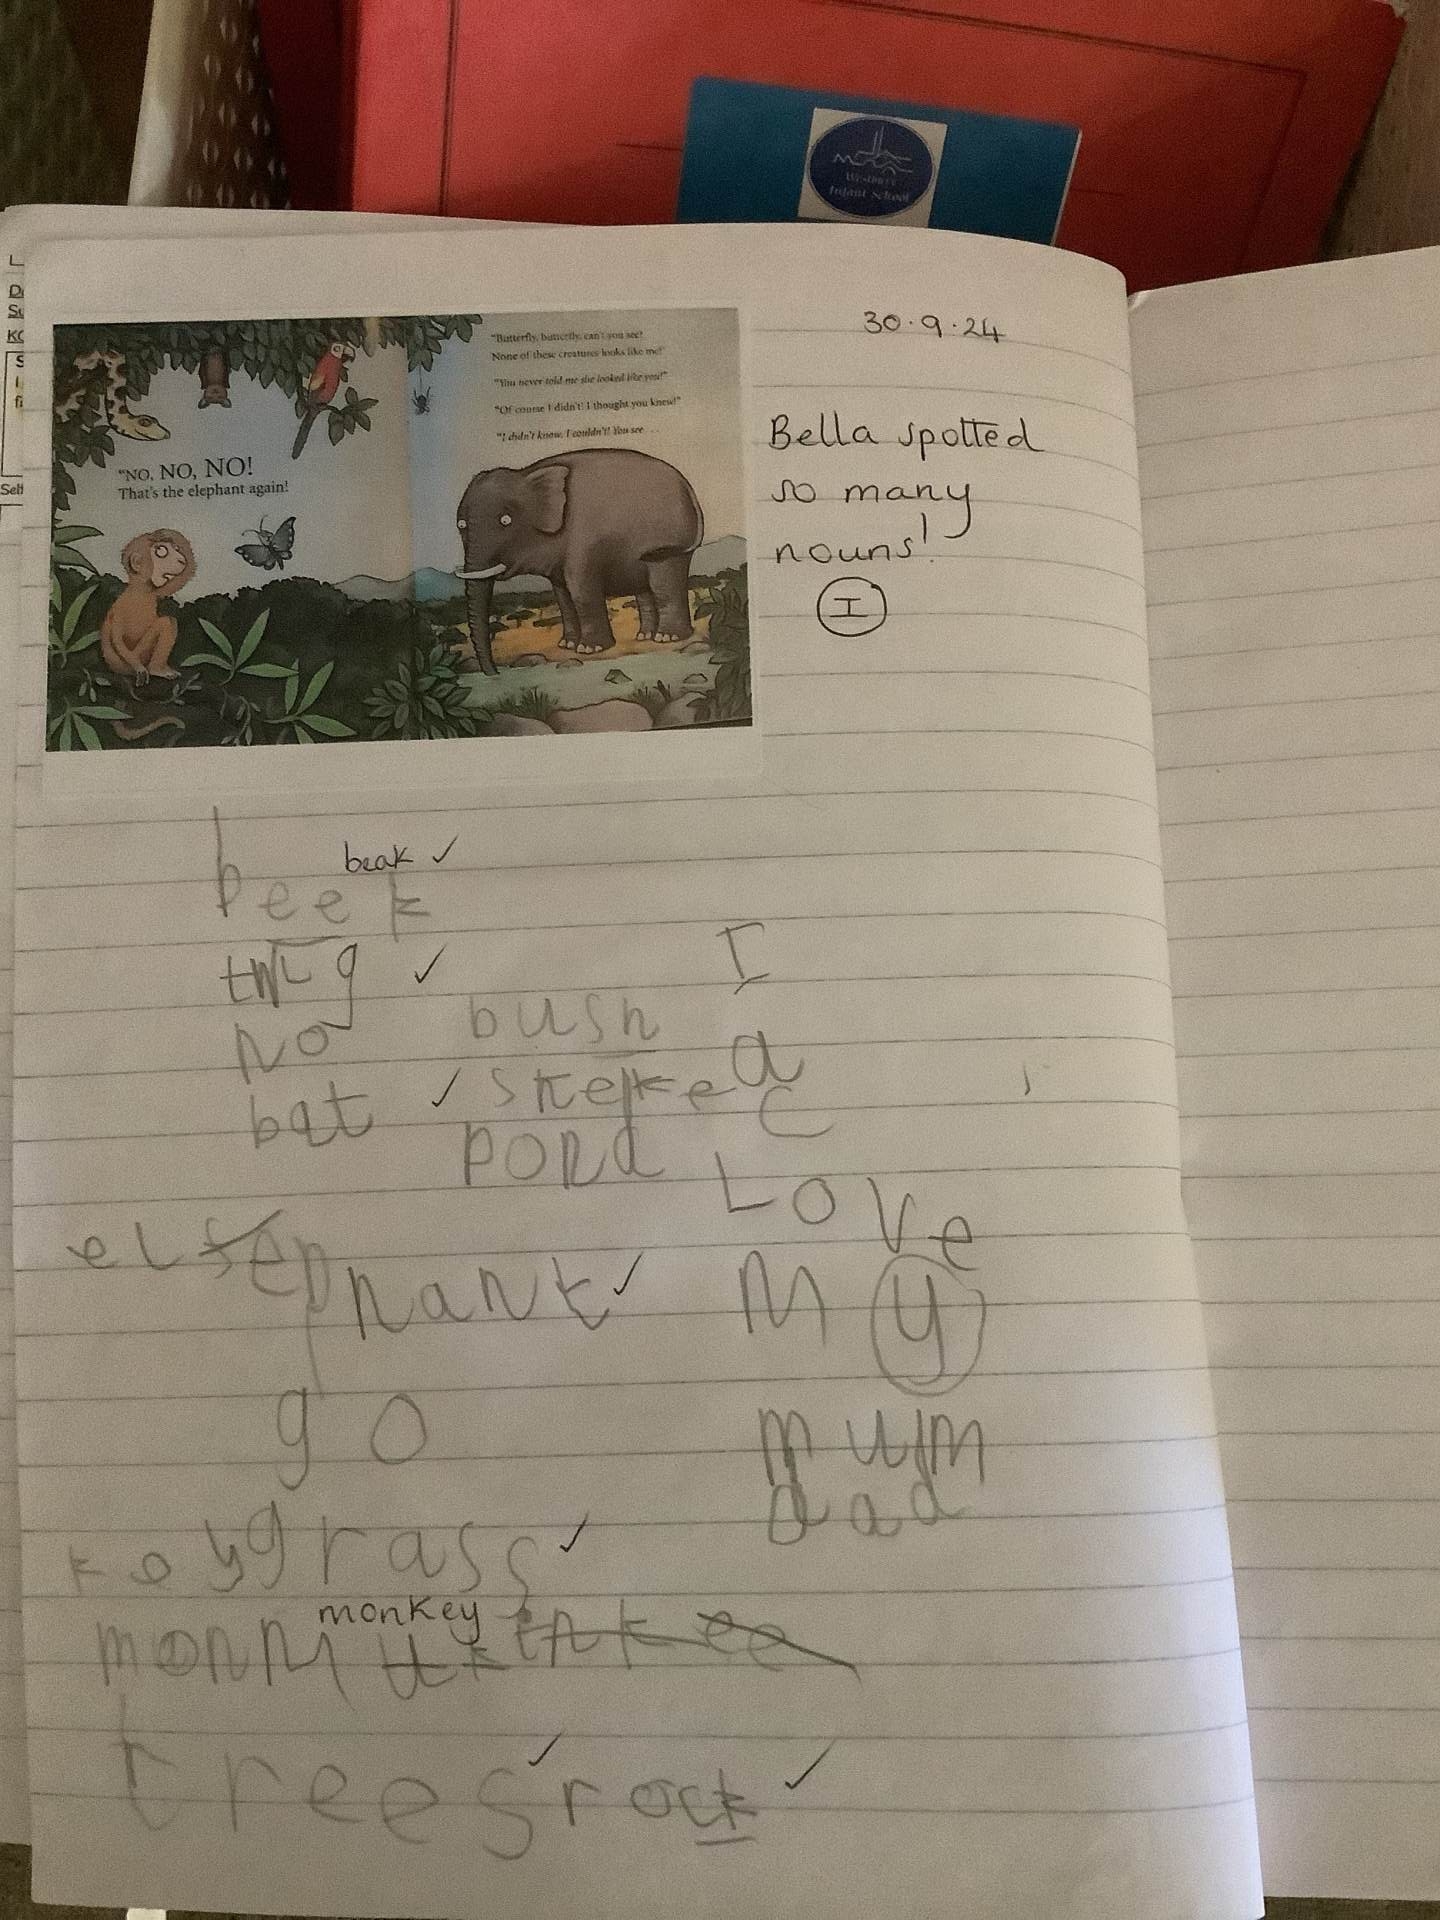 Westbury
Infant School
30.9.24
"Butterfly, butterfly, can't you see?
None of these creatures looks like me!"
"You never told me she looked like you!"
"Of course I didn't! I thought you knew!"
"I didn't know. I couldn't! You see . . .
"NO, NO, NO!
That's the elephant again!
Bella spotted
so many
nouns!
I
beak ✓
beek
twig ✓
no
bat ✓
bush
pond
I
a
c
Love
My
mum
dad
elephant ✓
go
key grass ✓
monkey
trees ✓ rock ✓